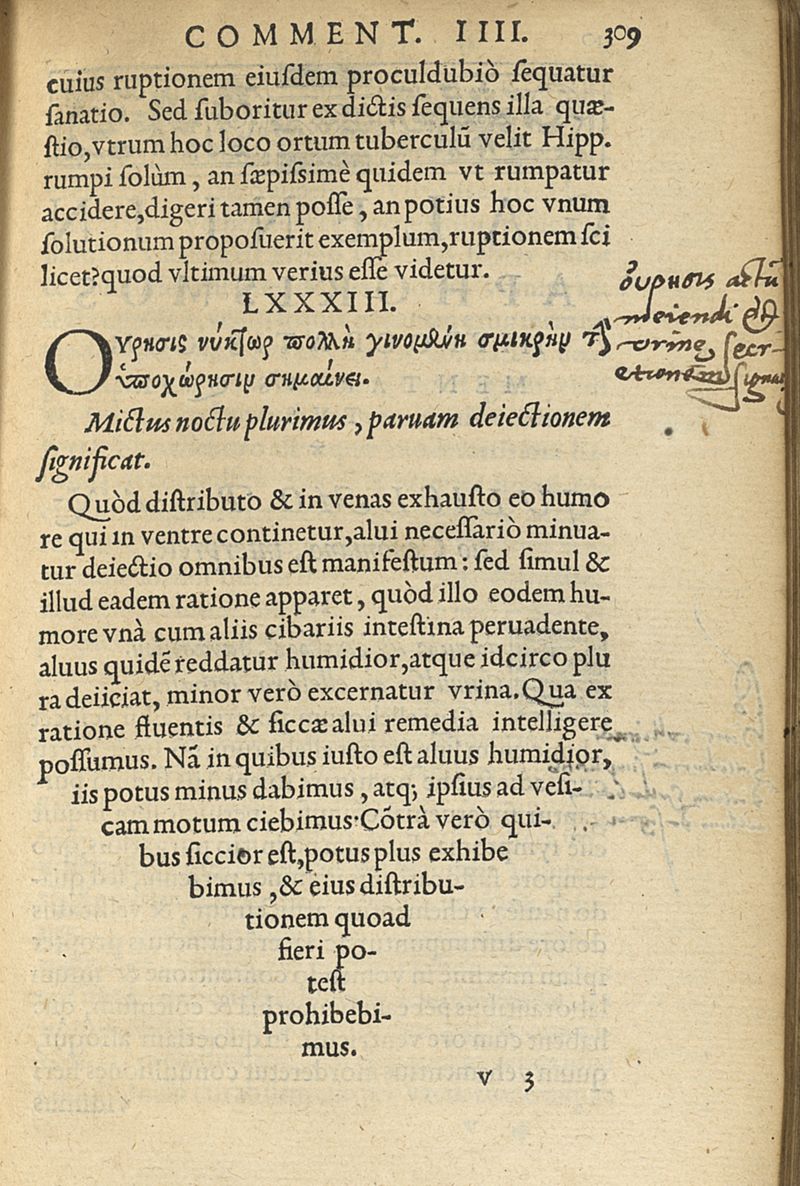 COMMENT. IIII. 309
cuius ruptionem eiuſdem proculdubiò ſequatur
ſanatio. Sed ſuboritur ex dictis ſequens illa quæ-
ſtio, vtrum hoc loco ortum tuberculũ velit Hipp.
rumpi ſolùm, an ſæpiſsimè quidem vt rumpatur
accidere, digeri tamen poſſe, an potius hoc vnum
ſolutionum propoſuerit exemplum, ruptionem ſci
licet? quod vltimum verius eſſe videtur.
LXXXIII.
Οὔρησις νύκτωρ πολλὴ γινομένη σμικρὴν τὴν
ὑποχώρησιν σημαίνει.
Mictus noctu plurimus, paruam deiectionem
ſignificat.
Quòd diſtributo & in venas exhauſto eo humo
re qui in ventre continetur, alui neceſſariò minua-
tur deiectio omnibus eſt manifeſtum: ſed ſimul &
illud eadem ratione apparet, quòd illo eodem hu-
more vnà cum aliis cibariis inteſtina peruadente,
aluus quidẽ reddatur humidior, atque idcirco plu
ra deiiciat, minor verò excernatur vrina. Qua ex
ratione fluentis & ſiccæ alui remedia intelligere
poſſumus. Nã in quibus iuſto eſt aluus humidior,
iis potus minus dabimus, atq; ipſius ad veſi-
cam motum ciebimus. Cõtrà verò qui-
bus ſiccior eſt, potus plus exhibe
bimus, & eius diſtribu-
tionem quoad
fieri po-
teſt
prohibebi-
mus.
v 3
οὔρησις actũ
meiendi &
vrinæ ſecr-
etionem ſignat